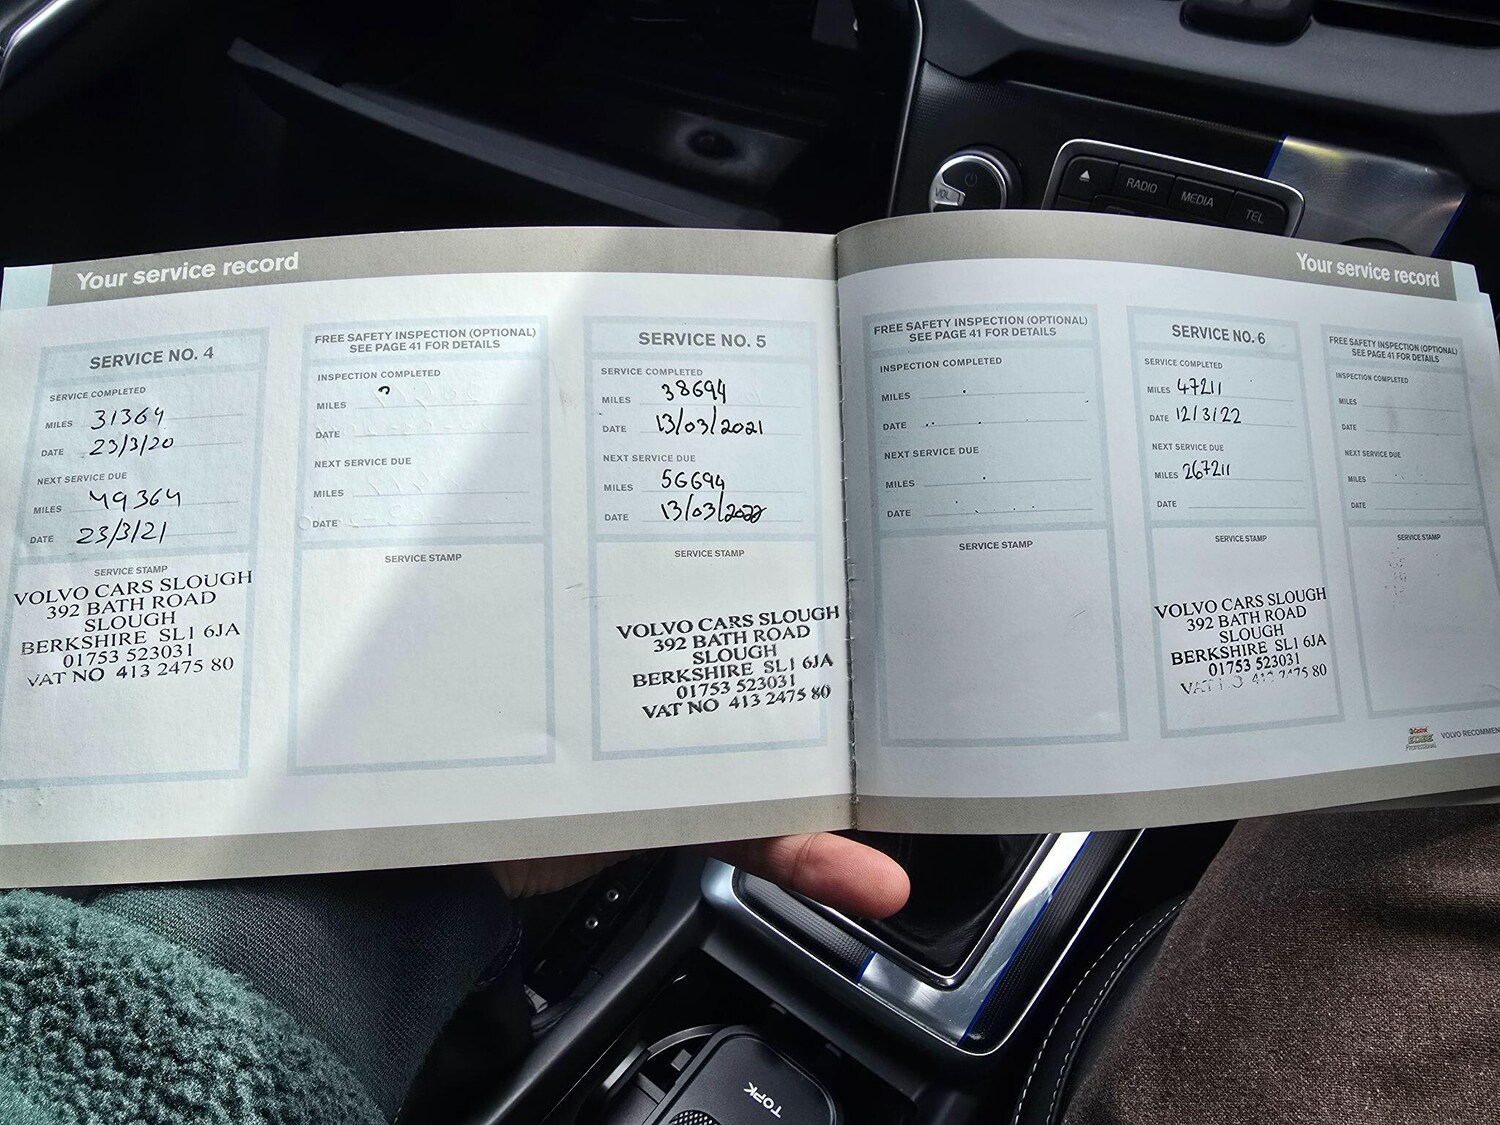 VOL
RADIO
MEDIA
TEL
Your service record
SERVICE NO. 4
SERVICE COMPLETED
MILES 31364
DATE 23/3/20
NEXT SERVICE DUE
MILES 49364
DATE 23/3/21
SERVICE STAMP
VOLVO CARS SLOUGH
392 BATH ROAD
SLOUGH
BERKSHIRE SL1 6JA
01753 523031
VAT NO 413 2475 80
FREE SAFETY INSPECTION (OPTIONAL)
SEE PAGE 41 FOR DETAILS
INSPECTION COMPLETED
MILES
DATE
NEXT SERVICE DUE
MILES
DATE
SERVICE STAMP
SERVICE NO. 5
SERVICE COMPLETED
MILES 38694
DATE 13/03/2021
NEXT SERVICE DUE
MILES 56694
DATE 13/03/2022
SERVICE STAMP
VOLVO CARS SLOUGH
392 BATH ROAD
SLOUGH
BERKSHIRE SL1 6JA
01753 523031
VAT NO 413 2475 80
Your service record
FREE SAFETY INSPECTION (OPTIONAL)
SEE PAGE 41 FOR DETAILS
INSPECTION COMPLETED
MILES
DATE
NEXT SERVICE DUE
MILES
DATE
SERVICE STAMP
SERVICE NO. 6
SERVICE COMPLETED
MILES 47211
DATE 12/3/22
NEXT SERVICE DUE
MILES 267211
DATE
SERVICE STAMP
VOLVO CARS SLOUGH
392 BATH ROAD
SLOUGH
BERKSHIRE SL1 6JA
01753 523031
VAT NO 413 2475 80
FREE SAFETY INSPECTION (OPTIONAL)
SEE PAGE 41 FOR DETAILS
INSPECTION COMPLETED
MILES
DATE
NEXT SERVICE DUE
MILES
DATE
SERVICE STAMP
Castrol
EDGE
Professional
VOLVO RECOMMEN
TOPK